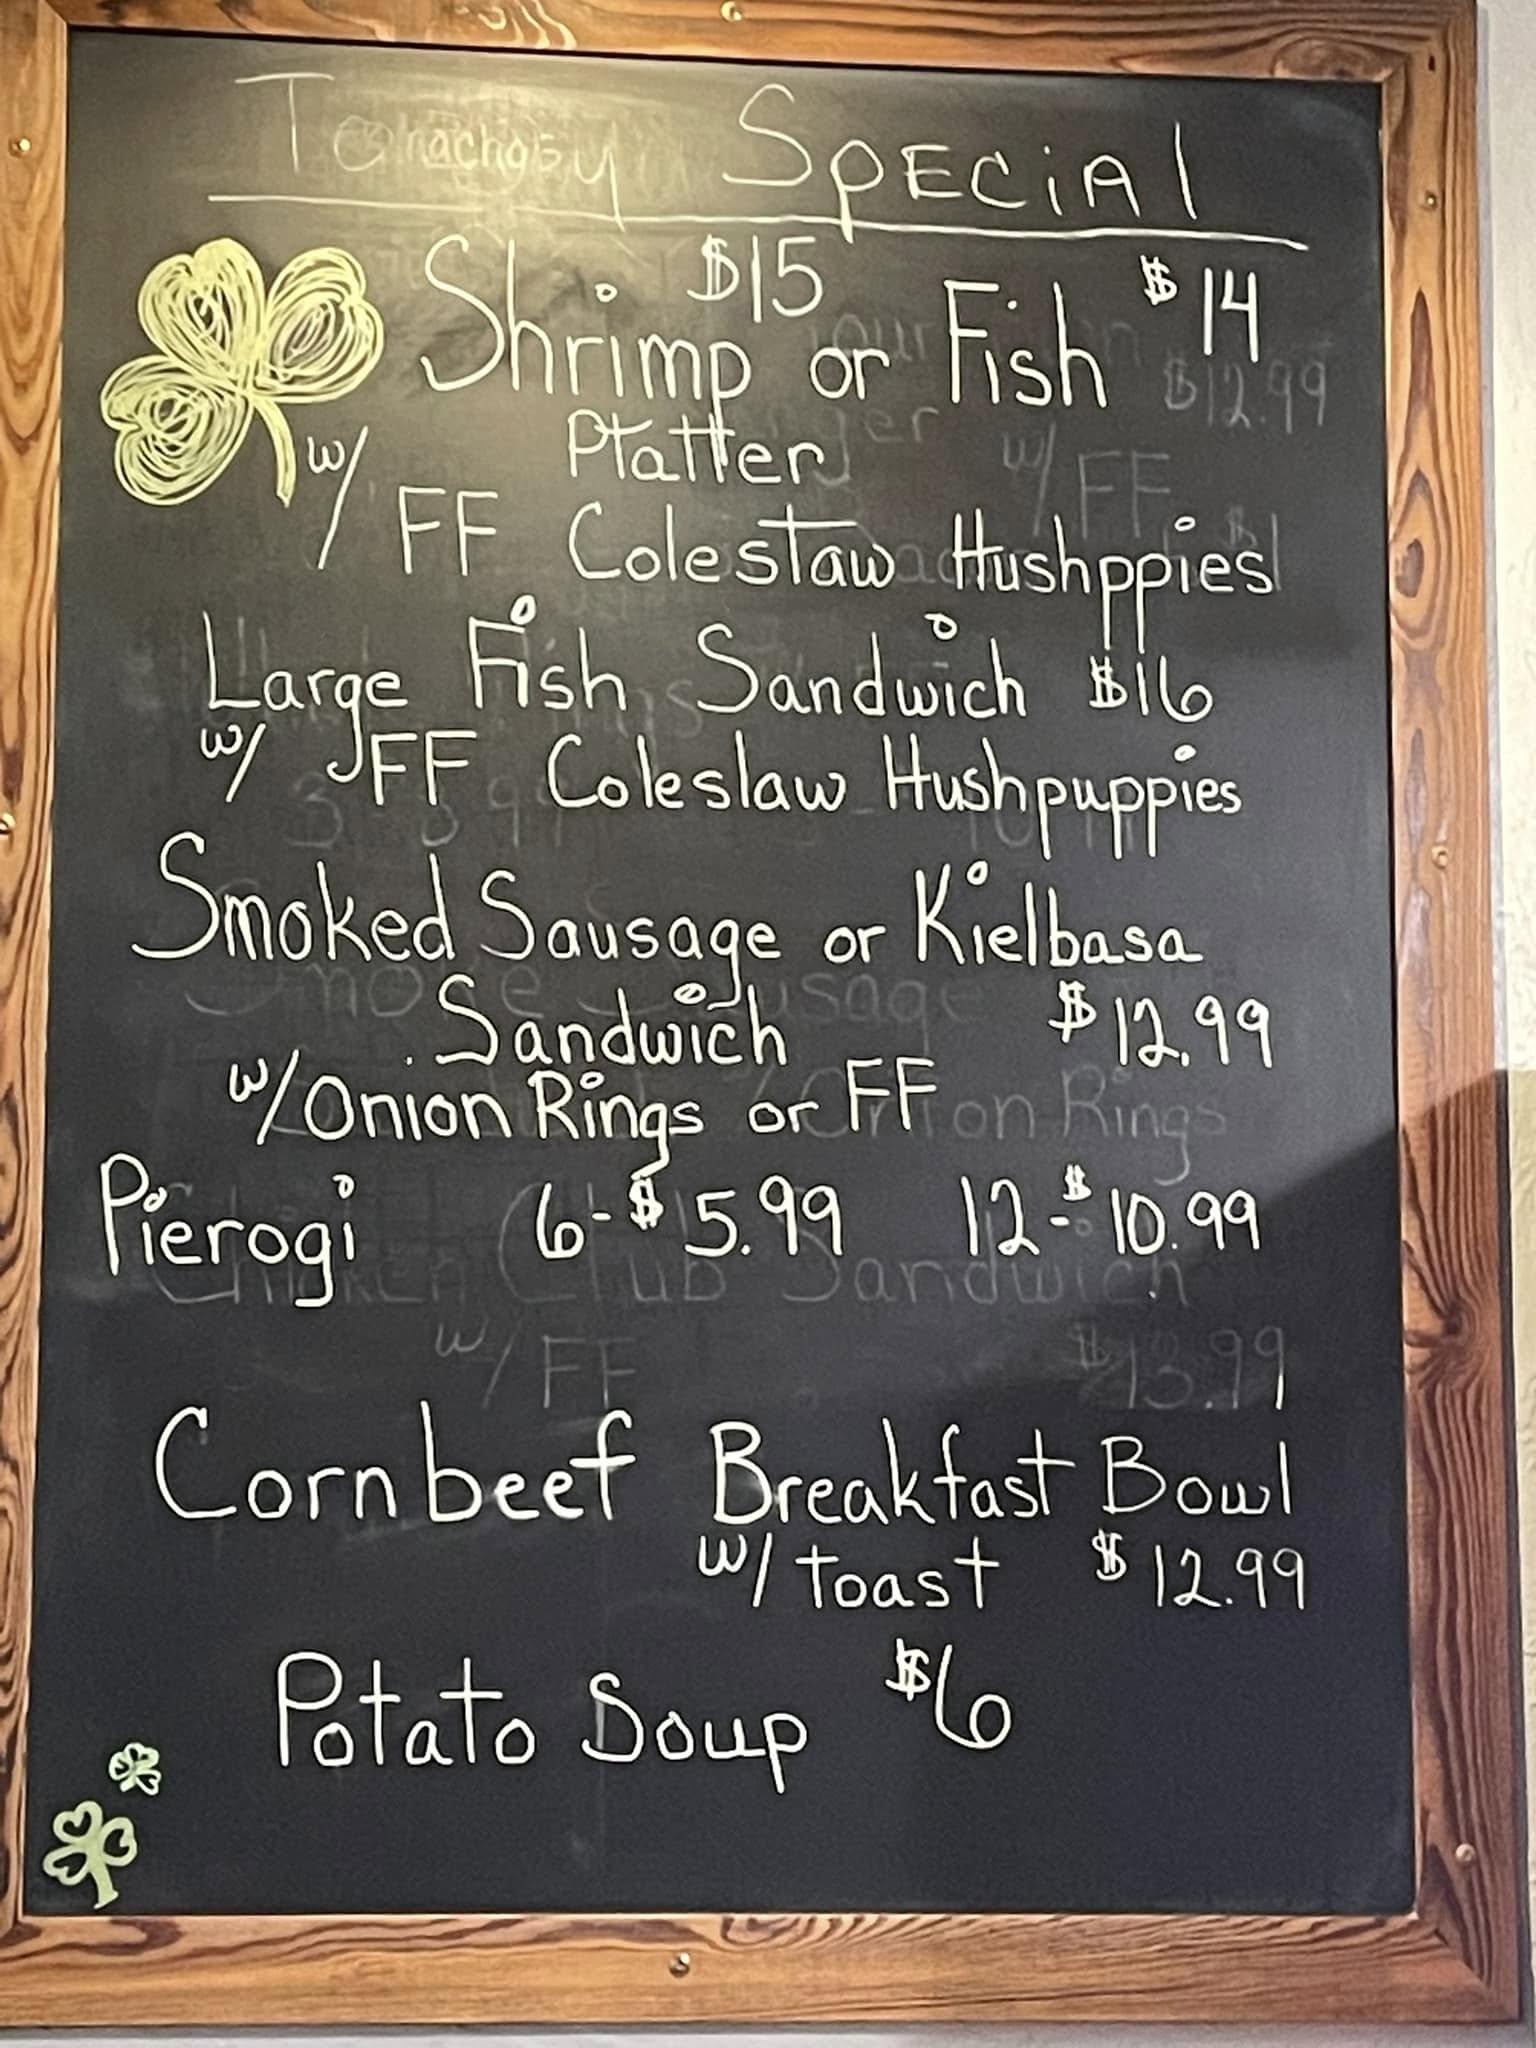 Today Special
$15 $14
Shrimp or Fish
Platter
w/ FF Coleslaw Hushppies
Large Fish Sandwich $16
w/ FF Coleslaw Hushpuppies
Smoked Sausage or Kielbasa
Sandwich $12.99
w/Onion Rings or FF
Pierogi 6-$5.99 12-$10.99
Chicken Club Sandwich
w/ FF $13.99
Cornbeef Breakfast Bowl
w/ toast $12.99
Potato Soup $6